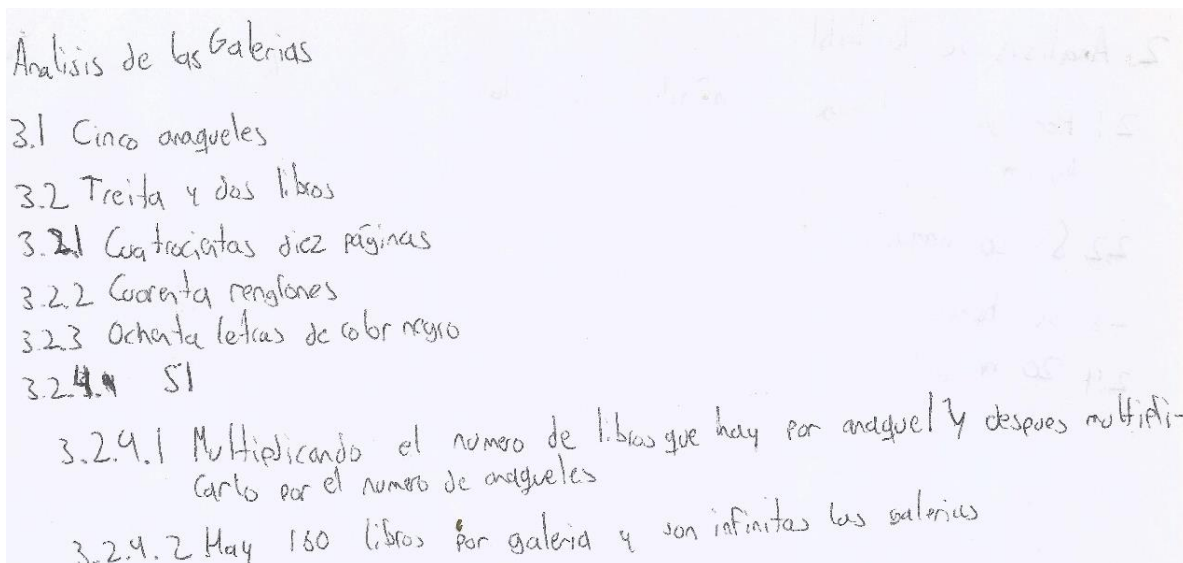 Analisis de las Galerias
3.1 Cinco anaqueles
3.2 Treita y dos libros
3.2.1 Cuatrocientas diez páginas
3.2.2 Cuarenta renglones
3.2.3 Ochenta letras de color negro
3.2.4. SI
3.2.4.1 Multiplicando el numero de libros que hay por anaquel y despues multipli-
carlo por el numero de anaqueles
3.2.4.2 Hay 160 libros por galeria y son infinitas las galerias